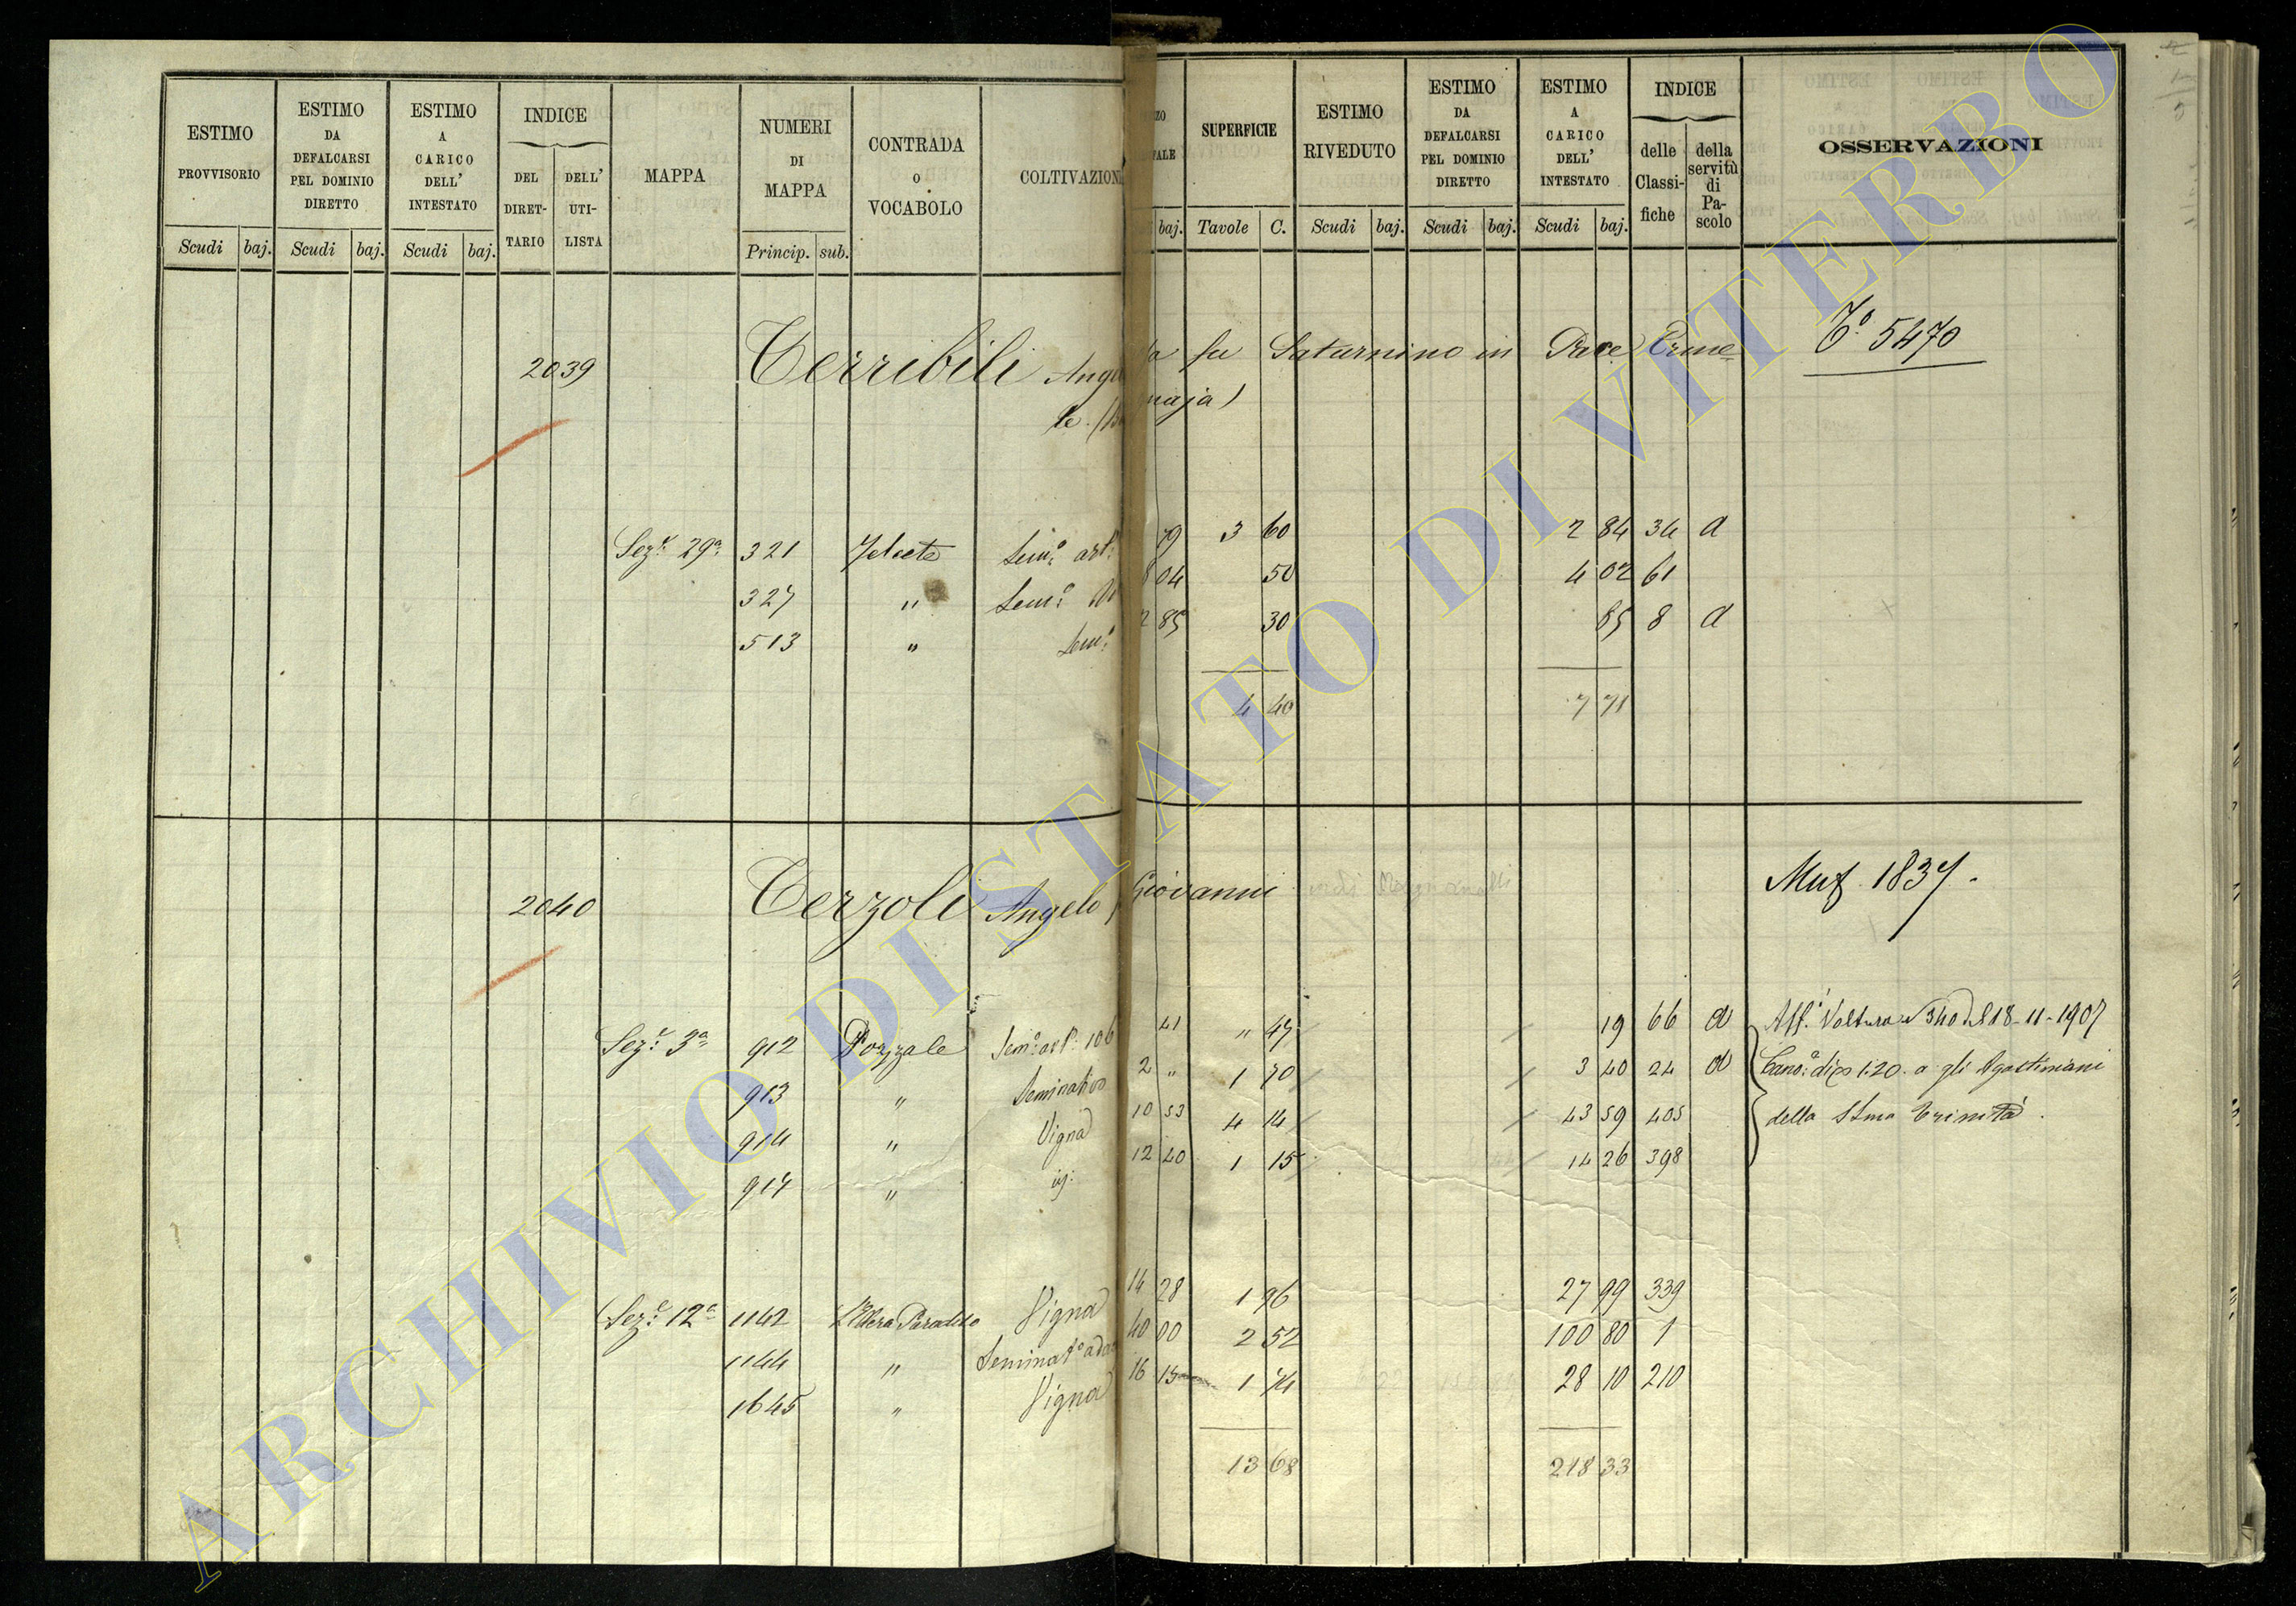 ESTIMO PROVVISORIO
Scudi baj.
ESTIMO DA DEFALCARSI PEL DOMINIO DIRETTO
Scudi baj.
ESTIMO A CARICO DELL' INTESTATO
Scudi baj.
INDICE
DEL DIRET- TARIO
DELL' UTI- LISTA
MAPPA
NUMERI DI MAPPA
Princip. sub.
CONTRADA O VOCABOLO
COLTIVAZION
baj.
SUPERFICIE
Tavole C.
ESTIMO RIVEDUTO
Scudi baj.
ESTIMO DA DEFALCARSI PEL DOMINIO DIRETTO
Scudi baj.
ESTIMO A CARICO DELL' INTESTATO
Scudi baj.
INDICE
delle Classi- fiche
della servitù di Pa- scolo
OSSERVAZIONI
2039 Terribili Ang la fu Saturnino in Pace Erme
T.° 5470
le naja)
Sez.e 29a 321 Sem.o art. 79 3 60 2 84 34 a
327 " Sem.o 04 50 4 02 61
513 " Sem.o 2 85 30 85 8 a
4 40 7 71
2040 Terzoli Angelo Giovanni
Mut. 1837.
Sez.e 3a 912 Pozzale Sem.o art. 106 41 " 47 19 66 a Aff. Voltura N 340 del 18-11-1907
913 " Seminativo 2 " 1 70 3 40 24 a Cano.e di 1:20 a gli Agostiniani
914 " Vigna 10 53 4 14 43 59 405 della S\tma Trinità.
917 " 12 40 1 15 14 26 398
Sez.e 12a 1142 Vigna 14 28 1 96 27 99 339
1144 " 40 00 2 52 100 80 1
1645 " Vigna 16 15 1 74 28 10 210
13 68 218 33
ARCHIVIO DI STATO DI VITERBO